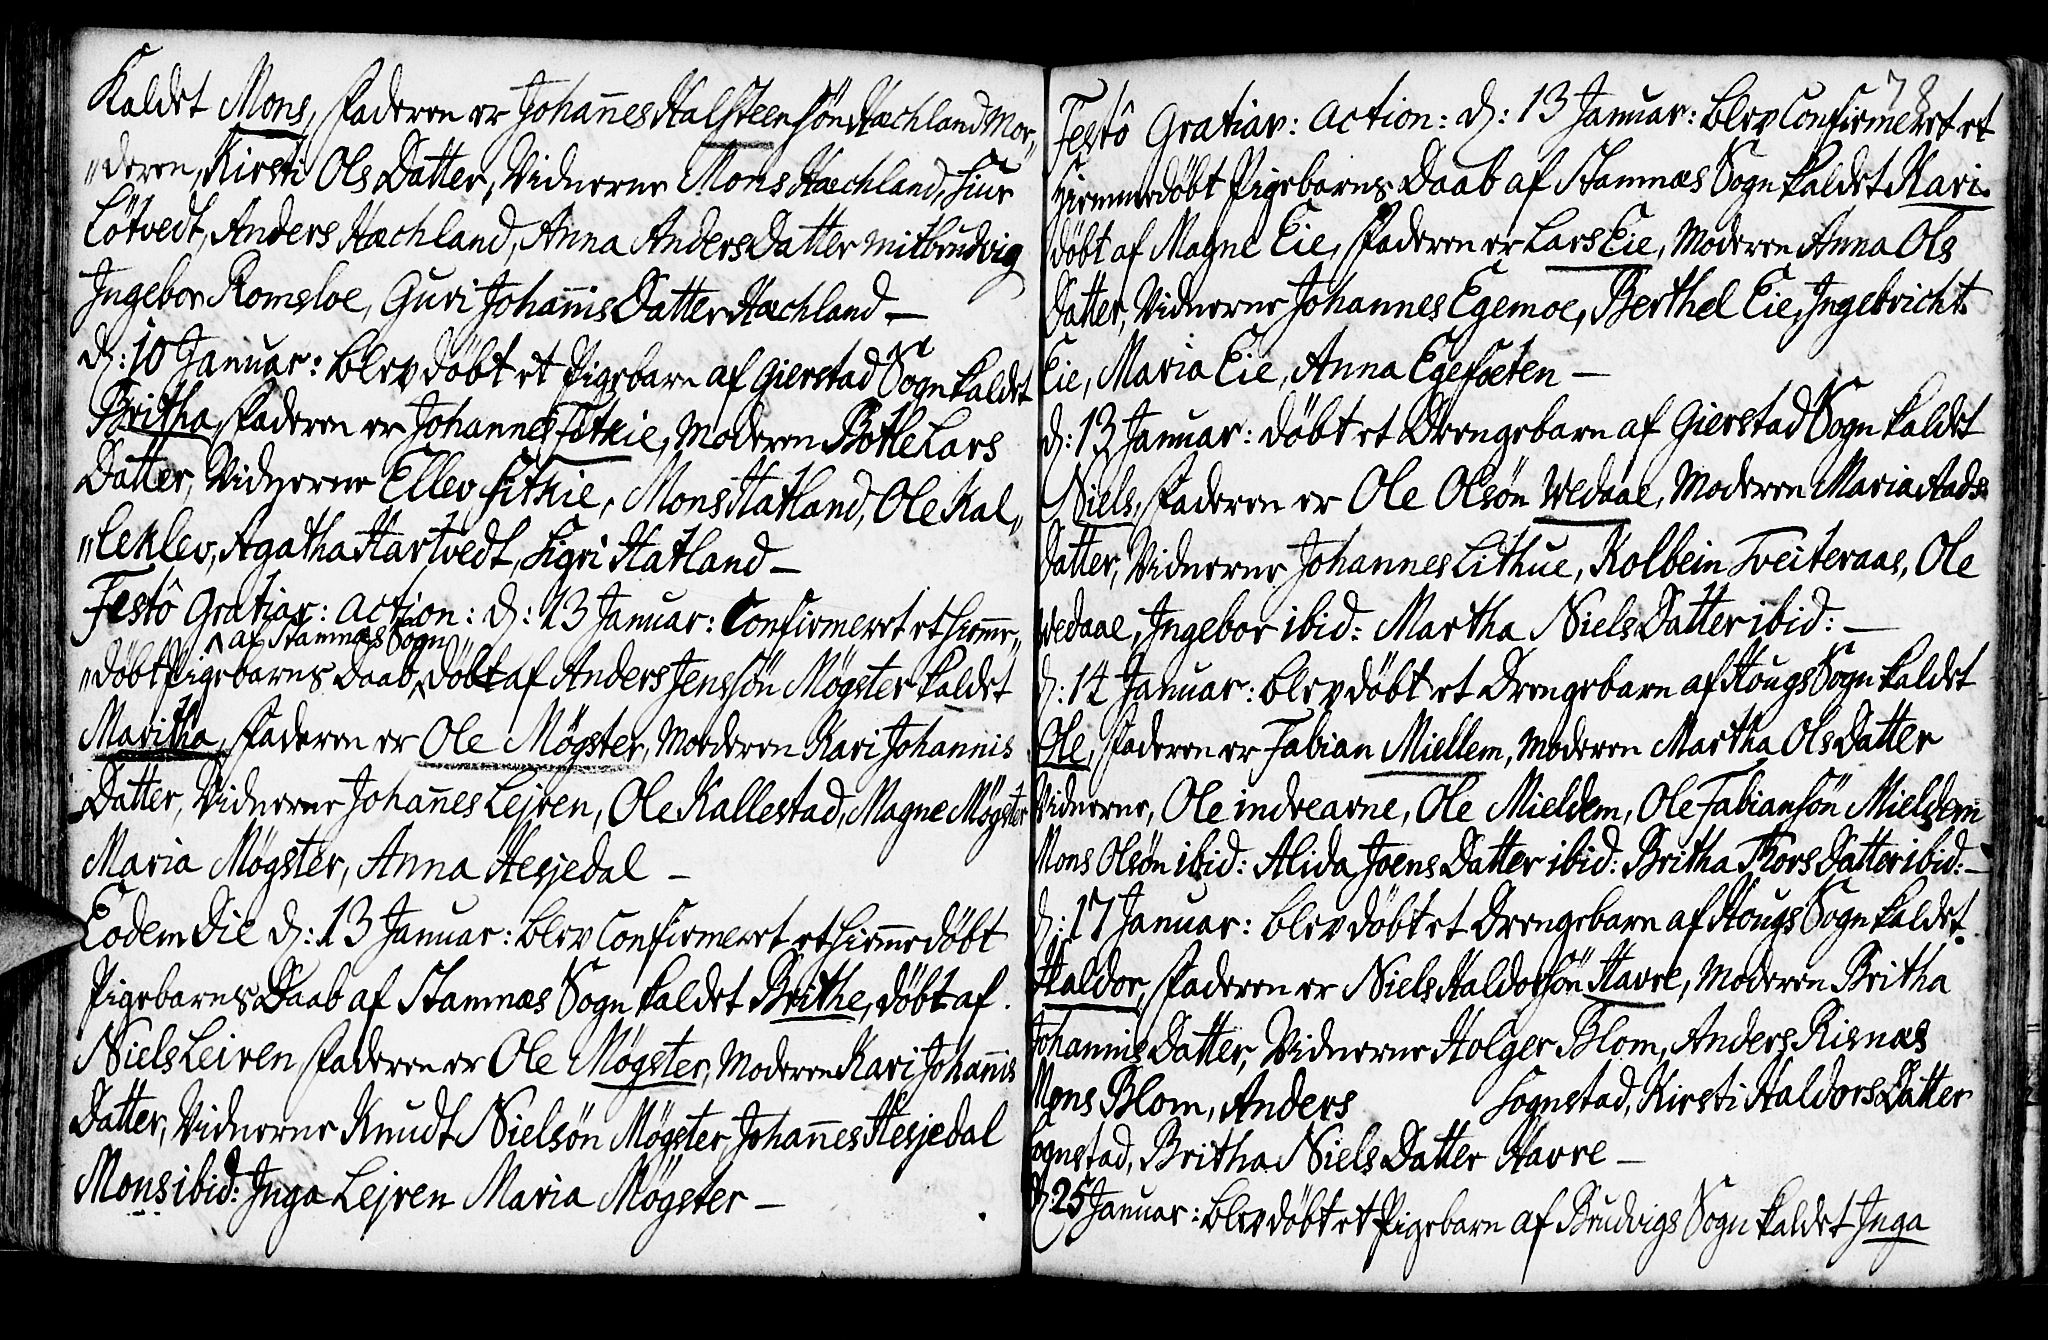 Kaldet Mons, Faderen er Johannes Halsteensön Hæchland Mor„
„deren, Kirsti Ols Datter, Vidnerne Mons Hæchland, Siur
Lötvedt, Anders Hæchland, Anna Anders Datter mitbrudvig
Ingebor Romsloe, Guri Johannis Datter Hæchland —
d: 10 Januar: blev döbt et Pigebarn af Gierstad Sogn kaldet
Britha, Faderen er Johannes Fitkie, Moderen Bothe Lars
Datter, Vidnerne Ellev Fitkie, Mons Hatland, Ole Kal„
„leklev, Agatha Hartvedt, Sigri Hatland —
Festô Gratiar: action: d: 13 Januar: Confirmeret et hiemme„
af Stamnæs Sogn
„döbt Pigebarns Daab, döbt af Anders Jenssön Mögster kaldet
Maritha, Faderen er Ole Mögster, Moderen Kari Johannis
Datter, Vidnerne Johannes Lejren, Ole Kallestad, Magne Mögster
Maria Mögster, Anna Hesjedal —
Eodem Die d: 13 Januar: blev Confirmeret et hiemmedöbt
Pigebarns Daab af Stamnæs Sogn kaldet Brithe, döbt af
Niels Leiren, Faderen er Ole Mögster, Moderen Kari Johannis
Datter, Vidnerne Knudt Nielsön Mögster, Johannes Hesjedal
Mons ibid: Inga Lejren Maria Mögster —
78
Festô Gratiar: action: d: 13 Januar: blev Confirmeret et
Hiemmedöbt Pigebarns Daab af Stamnæs Sogn kaldet Kari
döbt af Magne Eie, Faderen er Lars Eie, Moderen Anna Ols
Datter, Vidnerne Johannes Egemoe, Berthel Eie, Ingebricht
Eie, Maria Eie, Anna Egefoeten —
d: 13 Januar: döbt et Drengebarn af Gierstad Sogn kaldet
Niels, Faderen er Ole Olsön Wedaae, Moderen Maria Aads
Datter, Vidnerne Johannes Lithue, Kolbein Tveiteraas, Ole
Wedaae, Ingebor ibid: Martha Niels Datter ibid: —
d: 14 Januar: blev döbt et Drengebarn af Hougs Sogn kaldet
Ole, Faderen er Fabian Miellem, Moderen Martha Ols Datter
Vidnerne, Ole indrearne, Ole Mieldem, Ole Fabiansön Mieldem
Mons Olsön ibid: Alida Joens Datter ibid: Britha Thors Datter ibid: —
d: 17 Januar: blev döbt et Drengebarn af Hougs Sogn kaldet
Haldor, Faderen er Niels Haldorsön Havre, Moderen Britha
Johannis Datter, Vidnerne Holger Blom, Anders Risnæs
Mons Blom, Anders Sognstad, Kirsti Haldors Datter
Sognstad, Britha Niels Datter Havre —
d: 25 Januar: blev döbt et Pigebarn af Brudvigs Sogn kaldet Inga